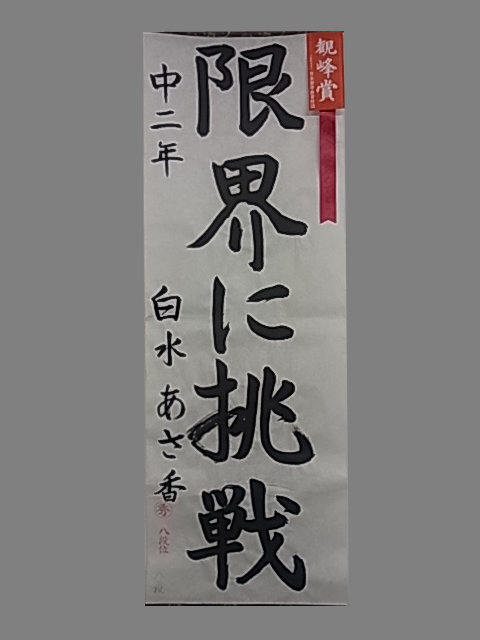 観峰賞
限界に挑戦
中二年 白水 あさ香
秀 八段位
段